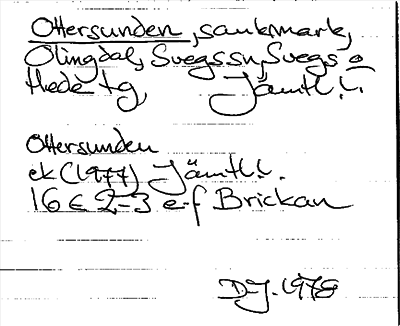 Ottersunden, sankmark,
Olingdal, Svegs sn, Svegs o
Hede tg, Jämtl.l.
Ottersunden
ek (1977) Jämtl.l.
16 E 2-3 e-f Brickan
D-J. 1978